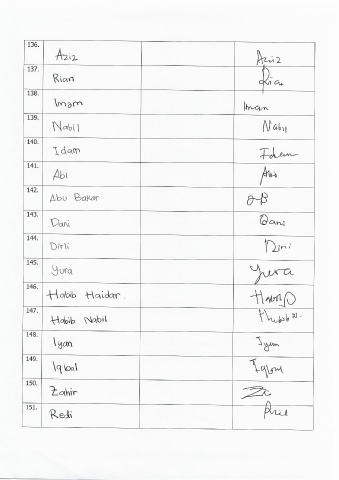 136. Aziz Aziz
137. Rian Ria
138. Imam Imam
139. Nabil Nabil
140. Idam Idam
141. Abi Abi
142. Abu Bakar
143. Dani Dani
144. Dirli
145. Yura Yura
146. Habib Haidar.
147. Habib Nabil
148. Iyan Iyan
149. Iqbal Iqbal
150. Zahir
151. Redi